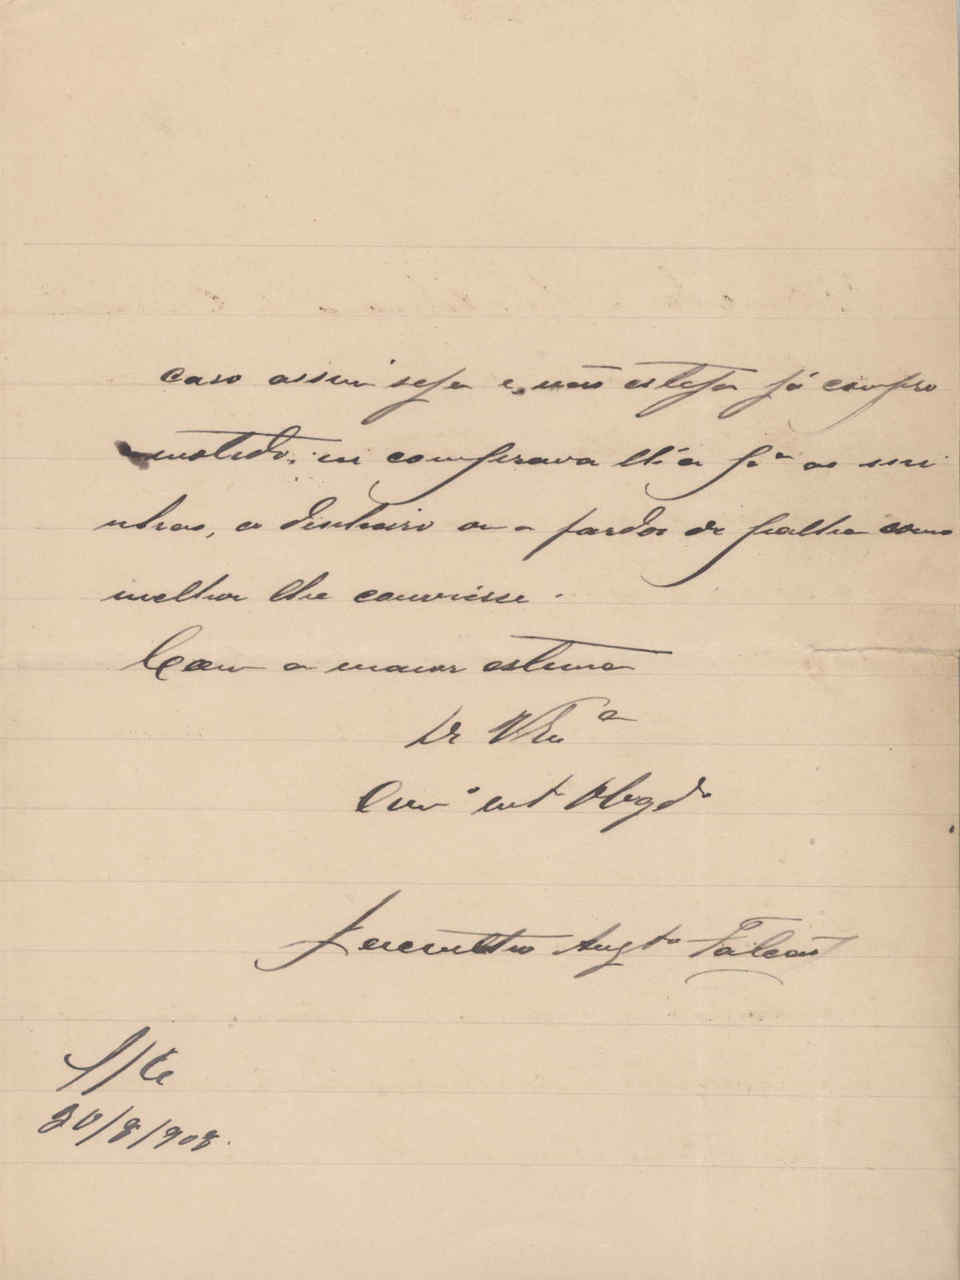 caso assim seja e não esteja já compro
metido, eu comprava lh'a pª as mi
nhas, a dinheiro ou a fardos de palha como
melhor lhe convier.
Com a maior estima
De V. Exª
mtº Obrgdº
Augtº Falcão
S/C
20/8/908.